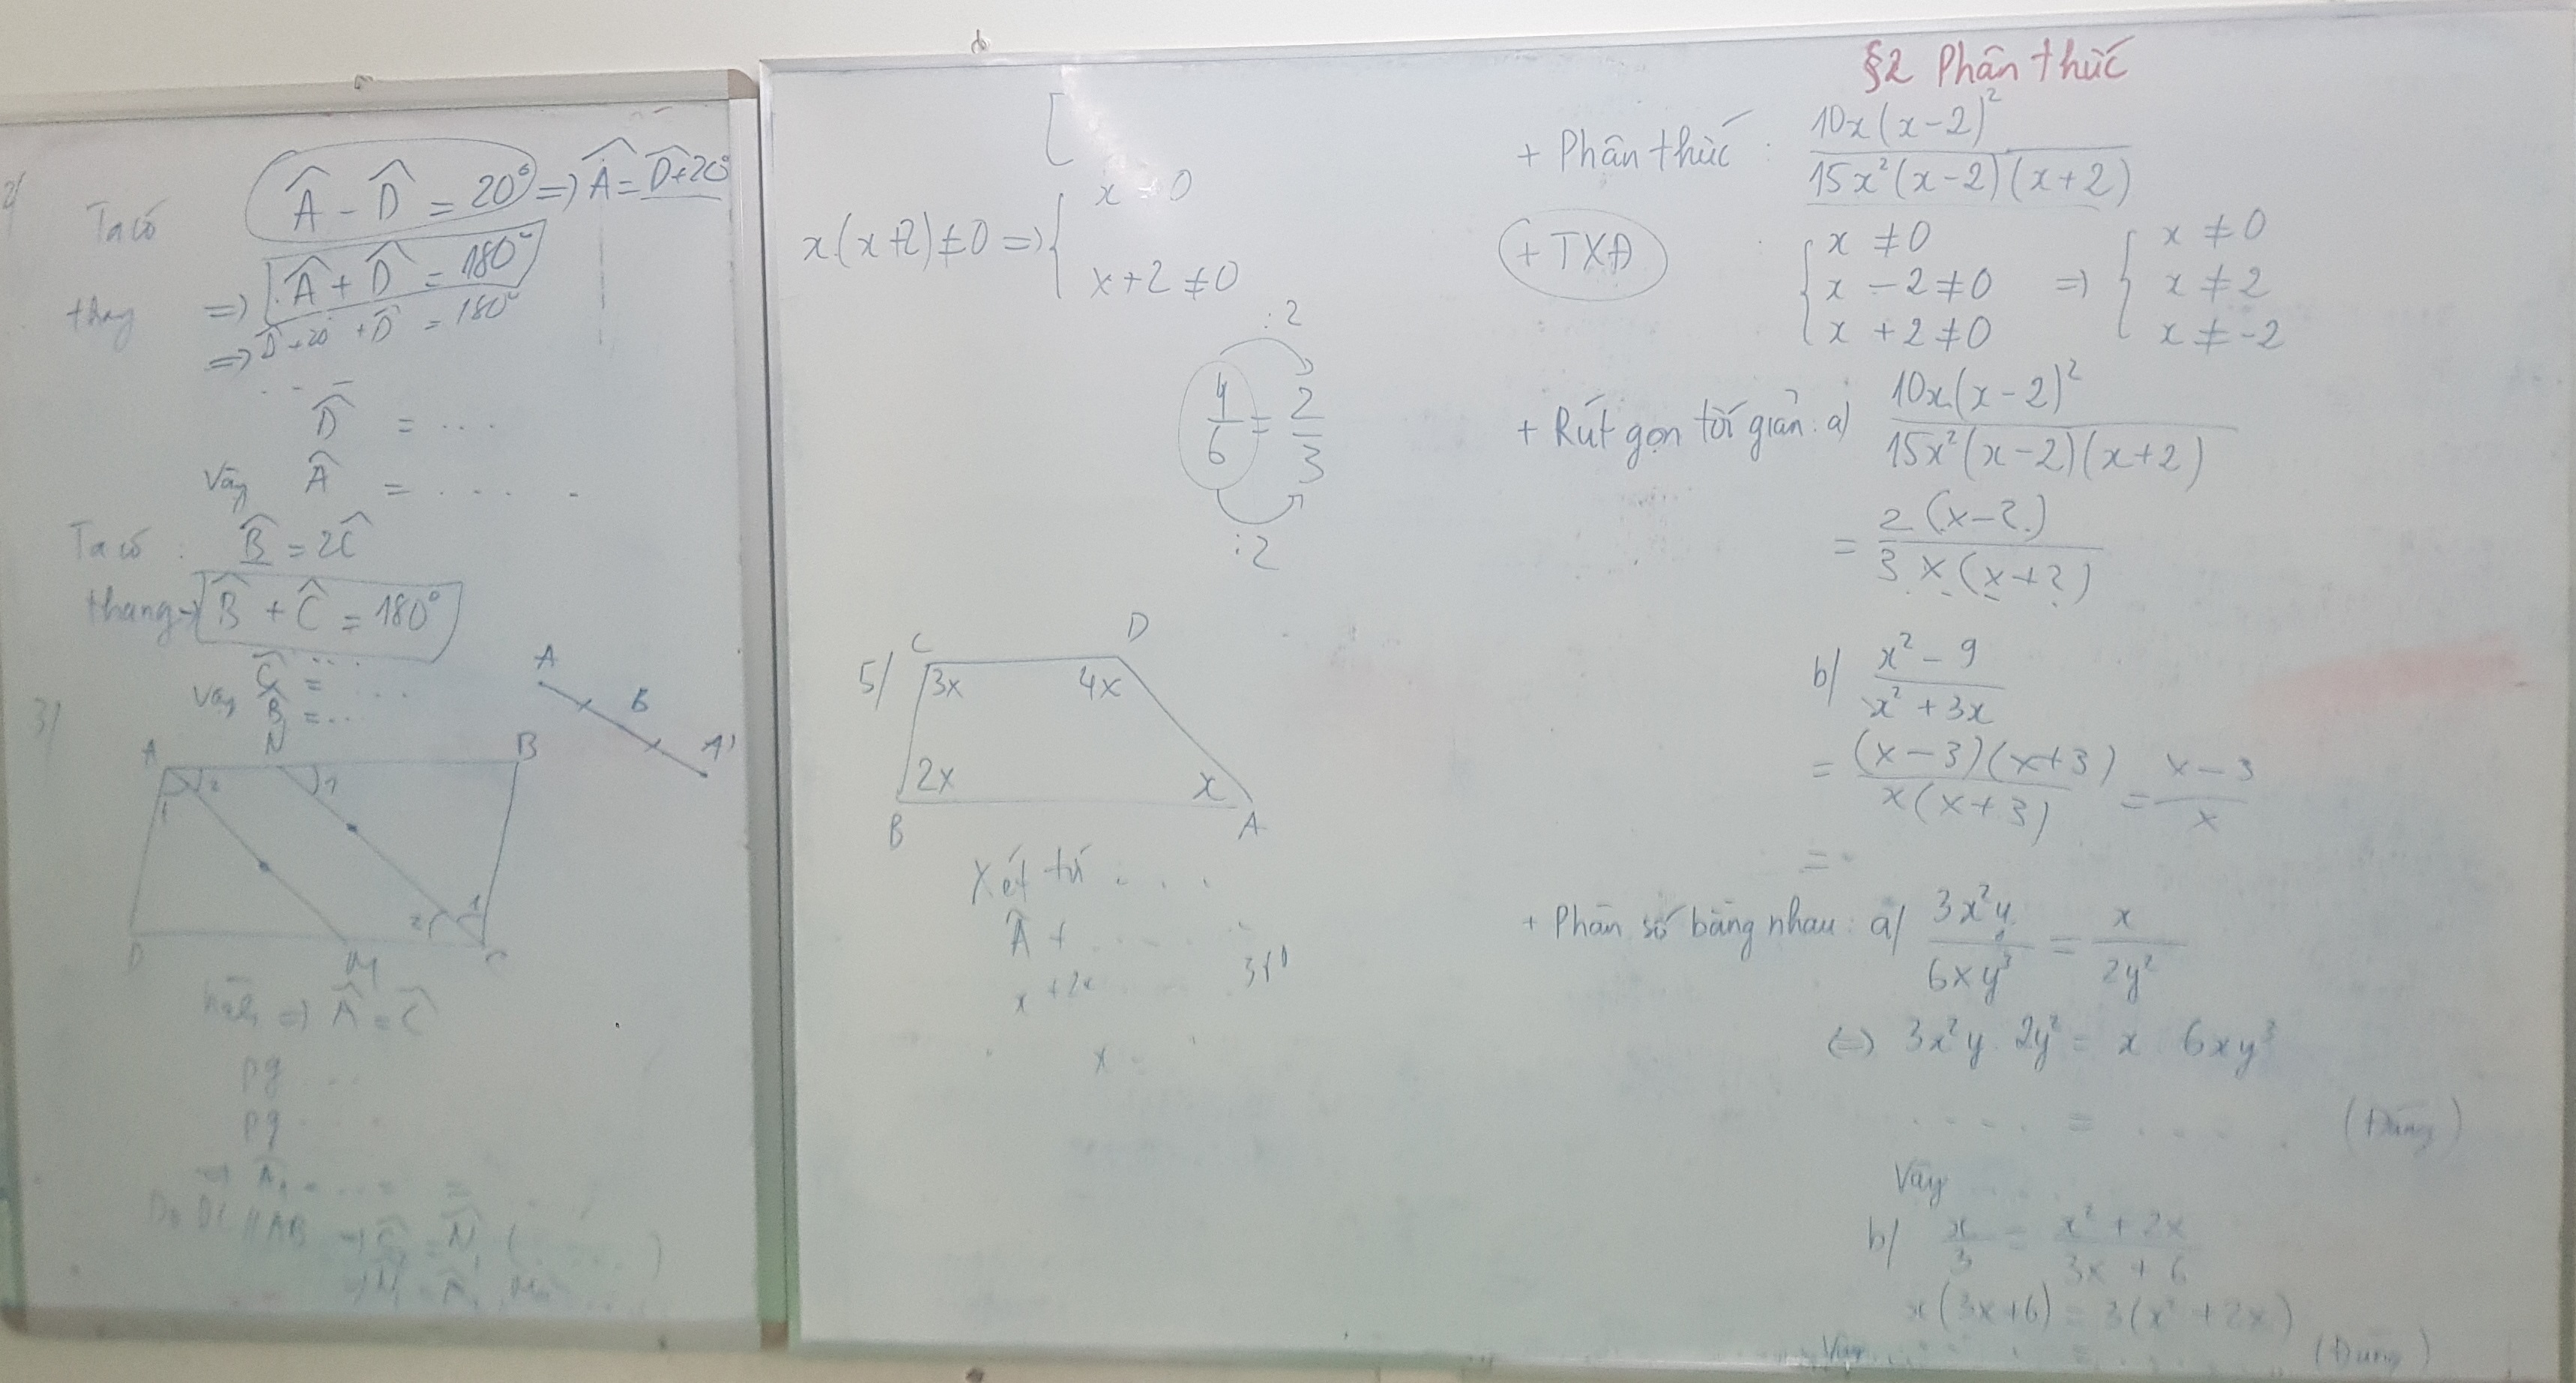 2/
Ta có
Â - D̂ = 20° => Â = D̂+20°
thang => Â + D̂ = 180°
=> D̂+20 + D̂ = 180°
D̂ = ...
Vậy Â = ....
Ta có : B̂ = 2Ĉ
thang => B̂ + Ĉ = 180°
Ĉ = ....
Vậy B̂ = ..
3/
A N B
1 2 1
2 1
D M C
A B A'
hình => Â = Ĉ
pg ..
pg ...
Do DC // AB
[
x.(x+2) ≠ 0 => { x 0
x+2 ≠ 0
:2
4/6 = 2/3
:2
5/
C D
3x 4x
2x x
B A
Xét tứ ...
Â + ....
x +2x
x =
§2 Phân thức
+ Phân thức : 10x(x-2)² / 15x²(x-2)(x+2)
+ TXĐ : { x ≠ 0
x - 2 ≠ 0
x + 2 ≠ 0
=> { x ≠ 0
x ≠ 2
x ≠ -2
+ Rút gọn tối giản: a) 10x(x-2)² / 15x²(x-2)(x+2)
= 2(x-2) / 3x(x+2)
b/ x² - 9 / x² + 3x
= (x-3)(x+3) / x(x+3) = x-3 / x
=
+ Phân số bằng nhau: a/ 3x²y / 6xy³ = x / 2y²
<=> 3x²y.2y² = x 6xy³
.... = .... (Đúng)
Vậy
b/ x/3 = x² + 2x / 3x + 6
x(3x+6) = 3(x² + 2x)
Vậy ... = (Đúng)